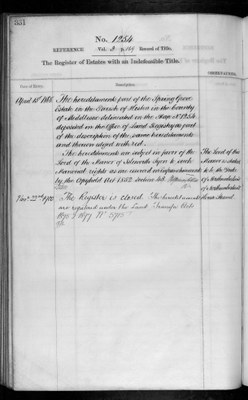 531
No. 1254
REFERENCE Vol. 3 p. 159 Record of Title.
The Register of Estates with an Indefeasible Title.
OBSERVATIONS.
Date of Entry.
Description.
April 10th 1868 The hereditaments part of the Spring Grove
Estate in the Parish of Heston in the County
of Middlesex delineated on the Map No. 1254
deposited in the Office of Land Registry as part
of the description of the same hereditaments
and thereon edged with red.
The hereditaments are subject in favor of the
Lord of the Manor of Isleworth Syon to such
Manorial rights as are reserved
by the Copyhold Act 1852 Section 48
The Lord of the
Manor is stated
to be the Duke
of Northumberland
of Northumberland
House Strand.
Nov. 22nd 1900 The Register is closed. The hereditaments
are registered under the Land Transfer Acts
1875 & 1897